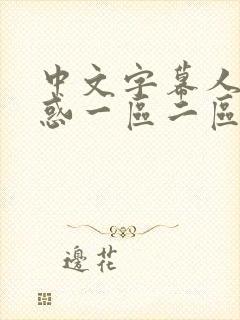 中文字幕人
惑一區二區
邊花